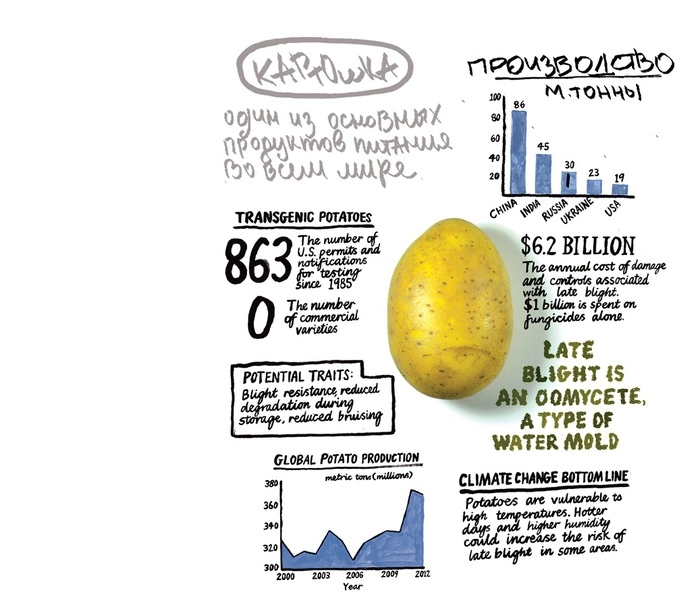 КАРТОШКА
один из основных
продуктов питания
во всем мире.
ПРОИЗВОДСТВО
М.ТОННЫ
100
80
60
40
20
86
45
30
23
19
CHINA
INDIA
RUSSIA
UKRAINE
USA
TRANSGENIC POTATOES
863
The number of
U.S. permits and
notifications
for testing
since 1985
0
The number
of commercial
varieties
$6.2 BILLION
The annual cost of damage
and controls associated
with late blight.
$1 billion is spent on
fungicides alone.
LATE
BLIGHT IS
AN OOMYCETE,
A TYPE OF
WATER MOLD
POTENTIAL TRAITS:
Blight resistance, reduced
degradation during
storage, reduced bruising
GLOBAL POTATO PRODUCTION
metric tons (millions)
380
360
340
320
300
2000
2003
2006
2009
2012
Year
CLIMATE CHANGE BOTTOM LINE
Potatoes are vulnerable to
high temperatures. Hotter
days and higher humidity
could increase the risk of
late blight in some areas.